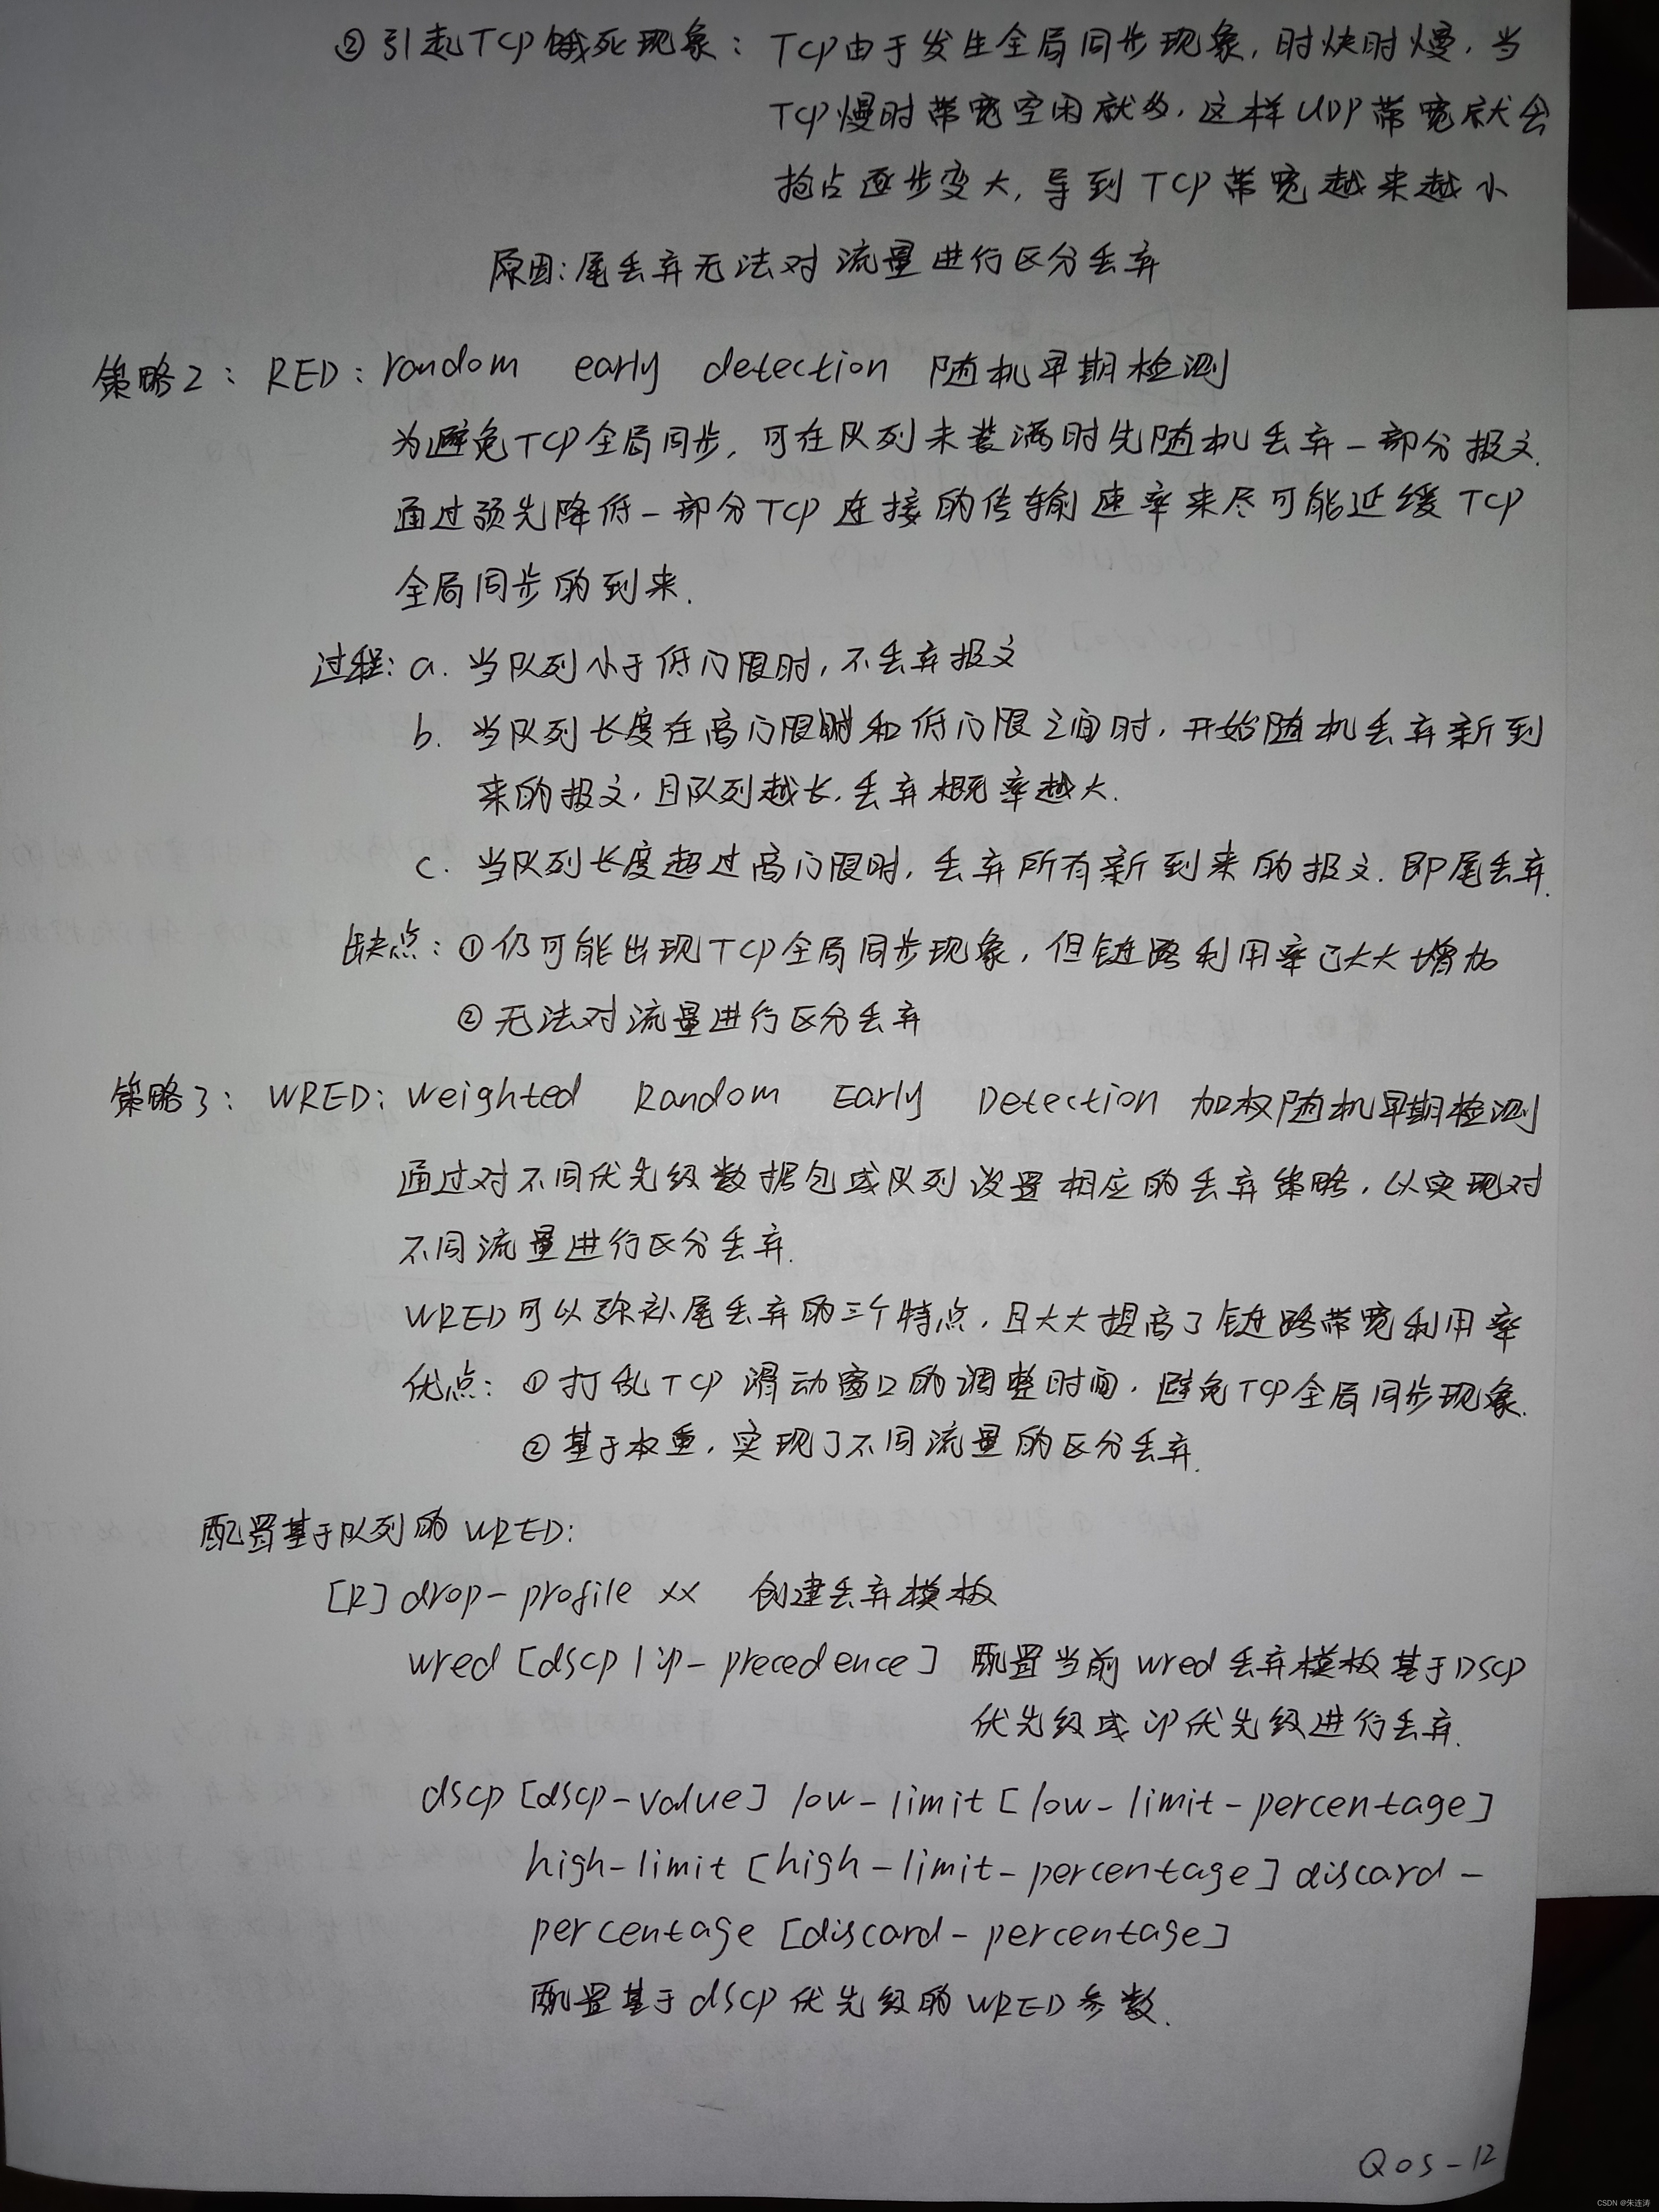 ② 引起TCP饿死现象: TCP由于发生全局同步现象,时快时慢,当
TCP慢时带宽空闲就多,这样UDP带宽就会
抢占逐步变大,导到TCP带宽越来越小
原因:尾丢弃无法对流量进行区分丢弃
策略2: RED: random early detection 随机早期检测
为避免TCP全局同步,可在队列未装满时先随机丢弃一部分报文.
通过预先降低一部分TCP连接的传输速率来尽可能延缓TCP
全局同步的到来.
过程: a. 当队列小于低门限时,不丢弃报文
b. 当队列长度在高门限和低门限之间时,开始随机丢弃新到
来的报文,且队列越长,丢弃概率越大.
c. 当队列长度超过高门限时,丢弃所有新到来的报文.即尾丢弃.
缺点: ①仍可能出现TCP全局同步现象,但链路利用率已大大增加
②无法对流量进行区分丢弃
策略3: WRED: Weighted Random Early Detection 加权随机早期检测
通过对不同优先级数据包或队列设置相应的丢弃策略,以实现对
不同流量进行区分丢弃.
WRED可以弥补尾丢弃的三个特点,且大大提高了链路带宽利用率
优点: ①打乱TCP滑动窗口的调整时间,避免TCP全局同步现象.
②基于权重,实现了不同流量的区分丢弃.
配置基于队列的WRED:
[R] drop-profile xx 创建丢弃模板
wred [dscp | ip-precedence] 配置当前wred丢弃模板基于DSCP
优先级或ip优先级进行丢弃.
dscp [dscp-value] low-limit [low-limit-percentage]
high-limit [high-limit-percentage] discard-
percentage [discard-percentage]
配置基于dscp优先级的WRED参数.
QoS-12
CSDN @朱连涛